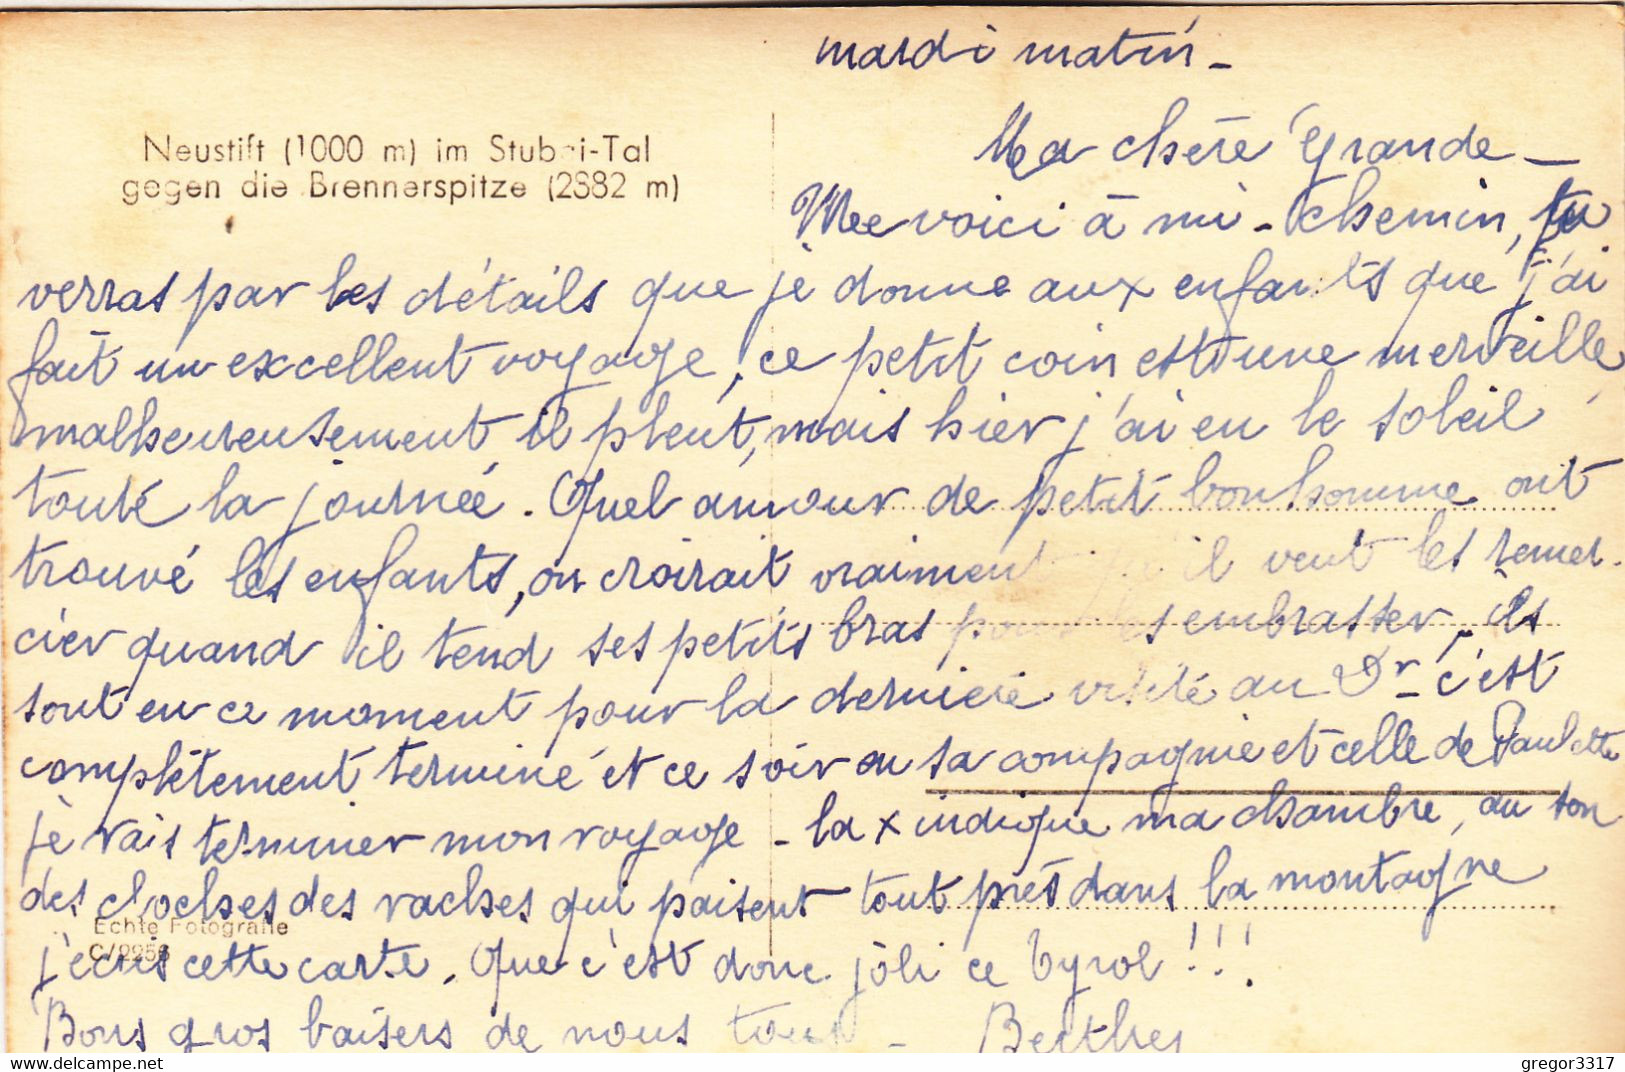 mardi matin -
Neustift (1000 m) im Stubai-Tal
gegen die Brennerspitze (2882 m)
Ma chère Grande -
Me voici à mi-chemin, tu
verras par les détails que je donne aux enfants que j'ai
fait un excellent voyage, ce petit coin est une merveille
malheureusement il pleut, mais hier j'ai eu le soleil
toute la journée. Quel amour de petit bonhomme ont
trouvé les enfants, on croirait vraiment qu'il veut les remer-
cier quand il tend ses petits bras pour les embrasser, ils
sont en ce moment pour la dernière visite au Dr - c'est
complètement terminé et ce soir en sa compagnie et celle de Paulette
je vais terminer mon voyage - la x indique ma chambre, au son
des cloches des vaches qui paissent tout près dans la montagne
Echte Fotografie
C/2256
j'écris cette carte. Que c'est donc joli ce Tyrol !!!
Bons gros baisers de nous tous - Berthe
gregor3317